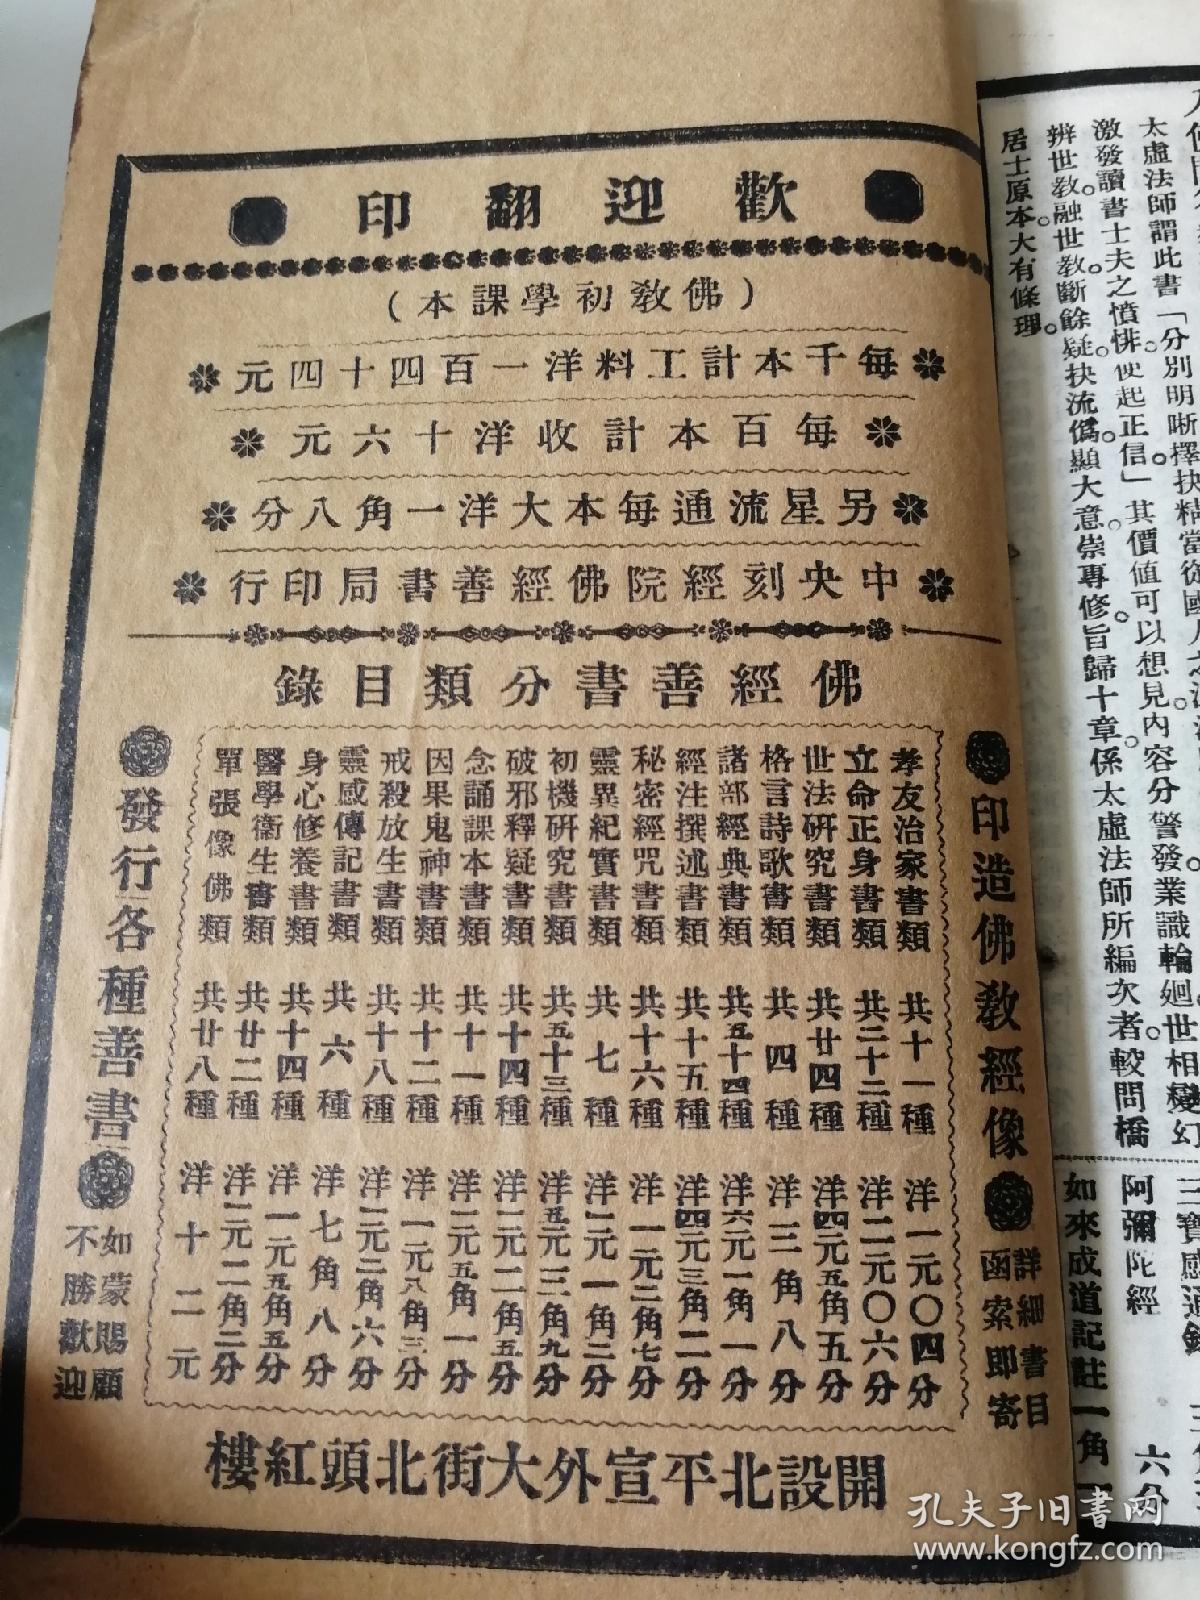 歡迎翻印
(佛教初學課本)
每千本計工料洋一百四十四元
每百本計收洋十六元
另星流通每本大洋一角八分
中央刻經院佛經善書局印行
佛經善書分類目錄
印造佛教經像
詳細書目
函索即寄
孝友治家書類 共十一種 洋一元〇四分
立命正身書類 共三十二種 洋二元〇六分
世法研究書類 共廿四種 洋四元五角五分
格言詩歌書類 共四種 洋三角八分
諸部經典書類 共五十四種 洋六元一角一分
經注撰述書類 共十五種 洋四元三角二分
秘密經咒書類 共十六種 洋一元二角七分
靈異紀實書類 共七種 洋二元一角二分
初機研究書類 共五十三種 洋五元三角九分
破邪釋疑書類 共十四種 洋二元二角五分
念誦課本書類 共十一種 洋二元五角一分
因果鬼神書類 共十二種 洋一元八角三分
戒殺放生書類 共十八種 洋二元二角六分
靈感傳記書類 共六種 洋七角八分
身心修養書類 共十四種 洋一元五角五分
醫學衞生書類 共廿二種 洋三元二角二分
單張像佛類 共廿八種 洋十二元
發行各種善書
如蒙賜顧
不勝歡迎
開設北平宣外大街北頭紅樓
太虛法師謂此書「分別明晰擇抉精當從國人之
激發讀書士夫之憤悱。使起正信。」其價值可以想見內容分警發業識輪廻世相變幻
辨世教。融世教。斷餘疑。抉流僞。顯大意。崇專修。旨歸十章。係太虛法師所編次者。較問橋
居士原本。大有條理。
三寶感通錄
阿彌陀經 六分
如來成道記註 一角
孔夫子旧书网
www.kongfz.com